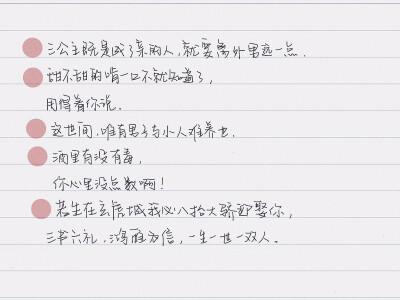 三公主既是成了亲的人，就要离外男远一点．
甜不甜的啃一口不就知道了，
用得着你说．
这世间，唯有男子与小人难养也．
酒里有没有毒，
你心里没点数啊！
若生在玄虎城我必八抬大轿迎娶你，
三书六礼，鸿雁为信，一生一世一双人．